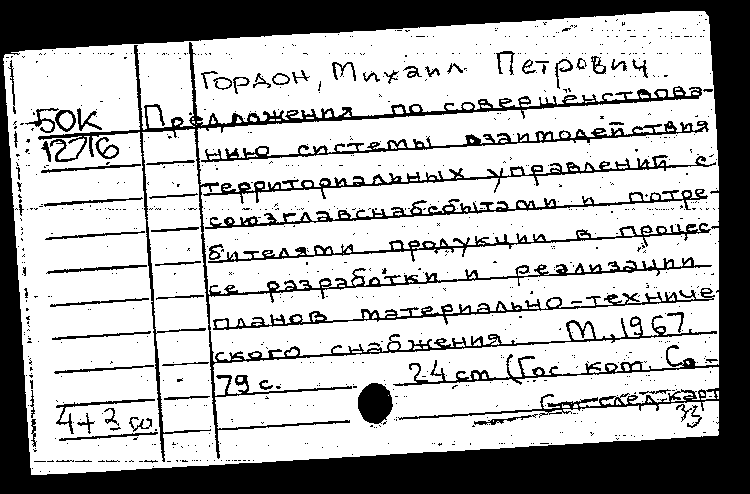 Гордон, Михаил Петрович
50К
12716
Предложения по совершенствова-
нию системы взаимодействия
территориальных управлений с
союзглавснабсбытами и потре-
бителями продукции в процес-
се разработки и реализации
планов материально-техниче-
ского снабжения. М., 1967.
79 с. 24 cm (Гос. ком. Со-
См. след. карт
4+3
33